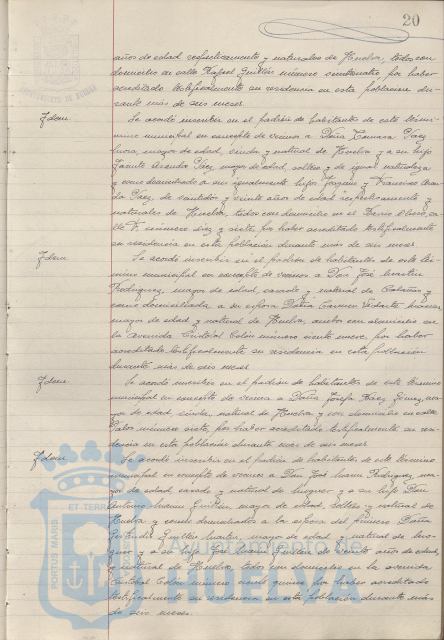 20
años de edad respectivamente y naturales de Huelva, todos con
domicilio en calle Rafael Guillén número veinticuatro, por haber
acreditado testificalmente su residencia en esta población du-
rante más de seis meses.
Idem. Se acordó inscribir en el padrón de habitantes de este tér-
mino municipal en concepto de vecinos a Doña
mayor de edad, viuda y natural de Huelva y a su hijo
mayor de edad, soltero y de igual naturaleza
y como domiciliados a sus igualmente hijos Joaquín y Francisco
de veintidos y veinte años de edad respectivamente y
naturales de Huelva, todos con domicilio en el Barrio Obrero, ca-
lle número diez y siete, por haber acreditado testificalmente
su residencia en esta población durante más de seis meses.
Idem. Se acordó inscribir en el padrón de habitantes de este tér-
mino municipal en concepto de vecino a Don José Martín
Rodríguez, mayor de edad, casado y natural de Calañas y
como domiciliada a su esposa Doña Carmen
mayor de edad y natural de Huelva, ambos con domicilio en
la Avenida Cristóbal Colón número ciento once, por haber
acreditado testificalmente su residencia en esta población
durante más de seis meses.
Idem. Se acordó inscribir en el padrón de habitantes de este término
municipal en concepto de vecino a Doña Josefa Báez Gómez, ma-
yor de edad, viuda, natural de Huelva y con domicilio en calle
Palos número siete, por haber acreditado testificalmente su re-
sidencia en esta población durante más de seis meses.
Idem. Se acordó inscribir en el padrón de habitantes de este término
municipal en concepto de vecinos a Don José Marín Rodríguez, ma-
yor de edad, casado y natural de Moguer y a su hijo Don
Antonio Marín Guillén, mayor de edad, soltero y natural de
Huelva y como domiciliados a la esposa del primero Doña
Gertrudis Guillén Martín, mayor de edad y natural de Mo-
guer y a su hijo José Marín Guillén de veinte años de edad
y natural de Huelva, todos con domicilio en la avenida
Cristóbal Colón número ciento quince, por haber acreditado
testificalmente su residencia en esta población durante más
de seis meses.
PORTUS MARIS ET TERRAE
Ayuntamiento de
HUELVA